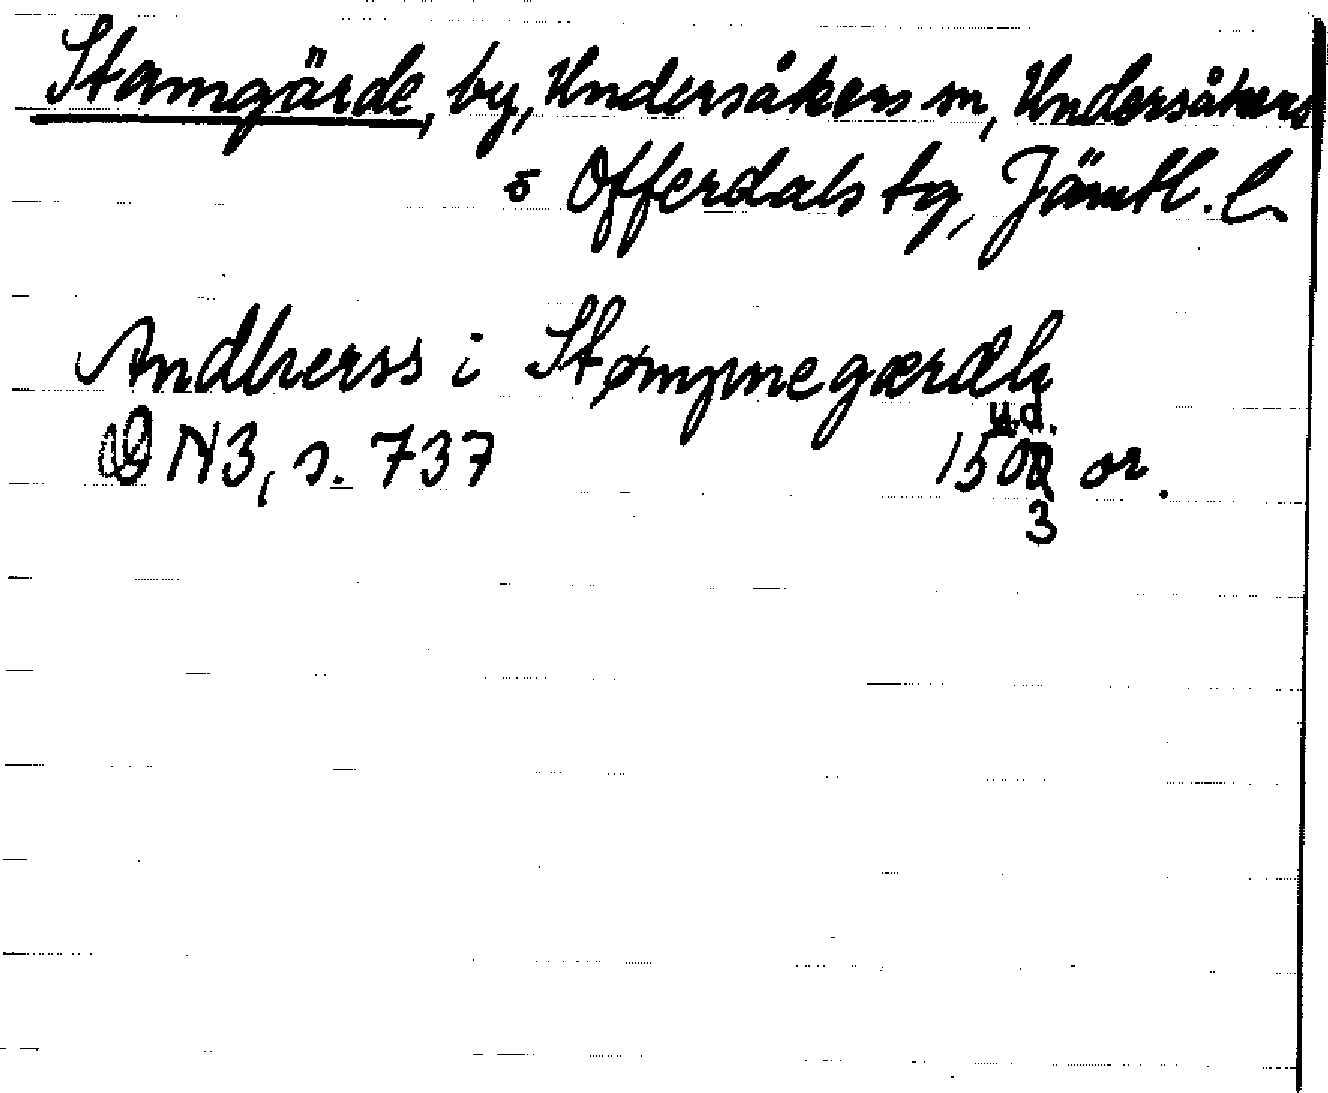 Stamgärde, by, Undersåkers sn, Undersåkers
o Offerdals tg, Jämtl. l
Andherss i Stompnegærdh
u.d.
DN3, s. 737 1500 or.
3